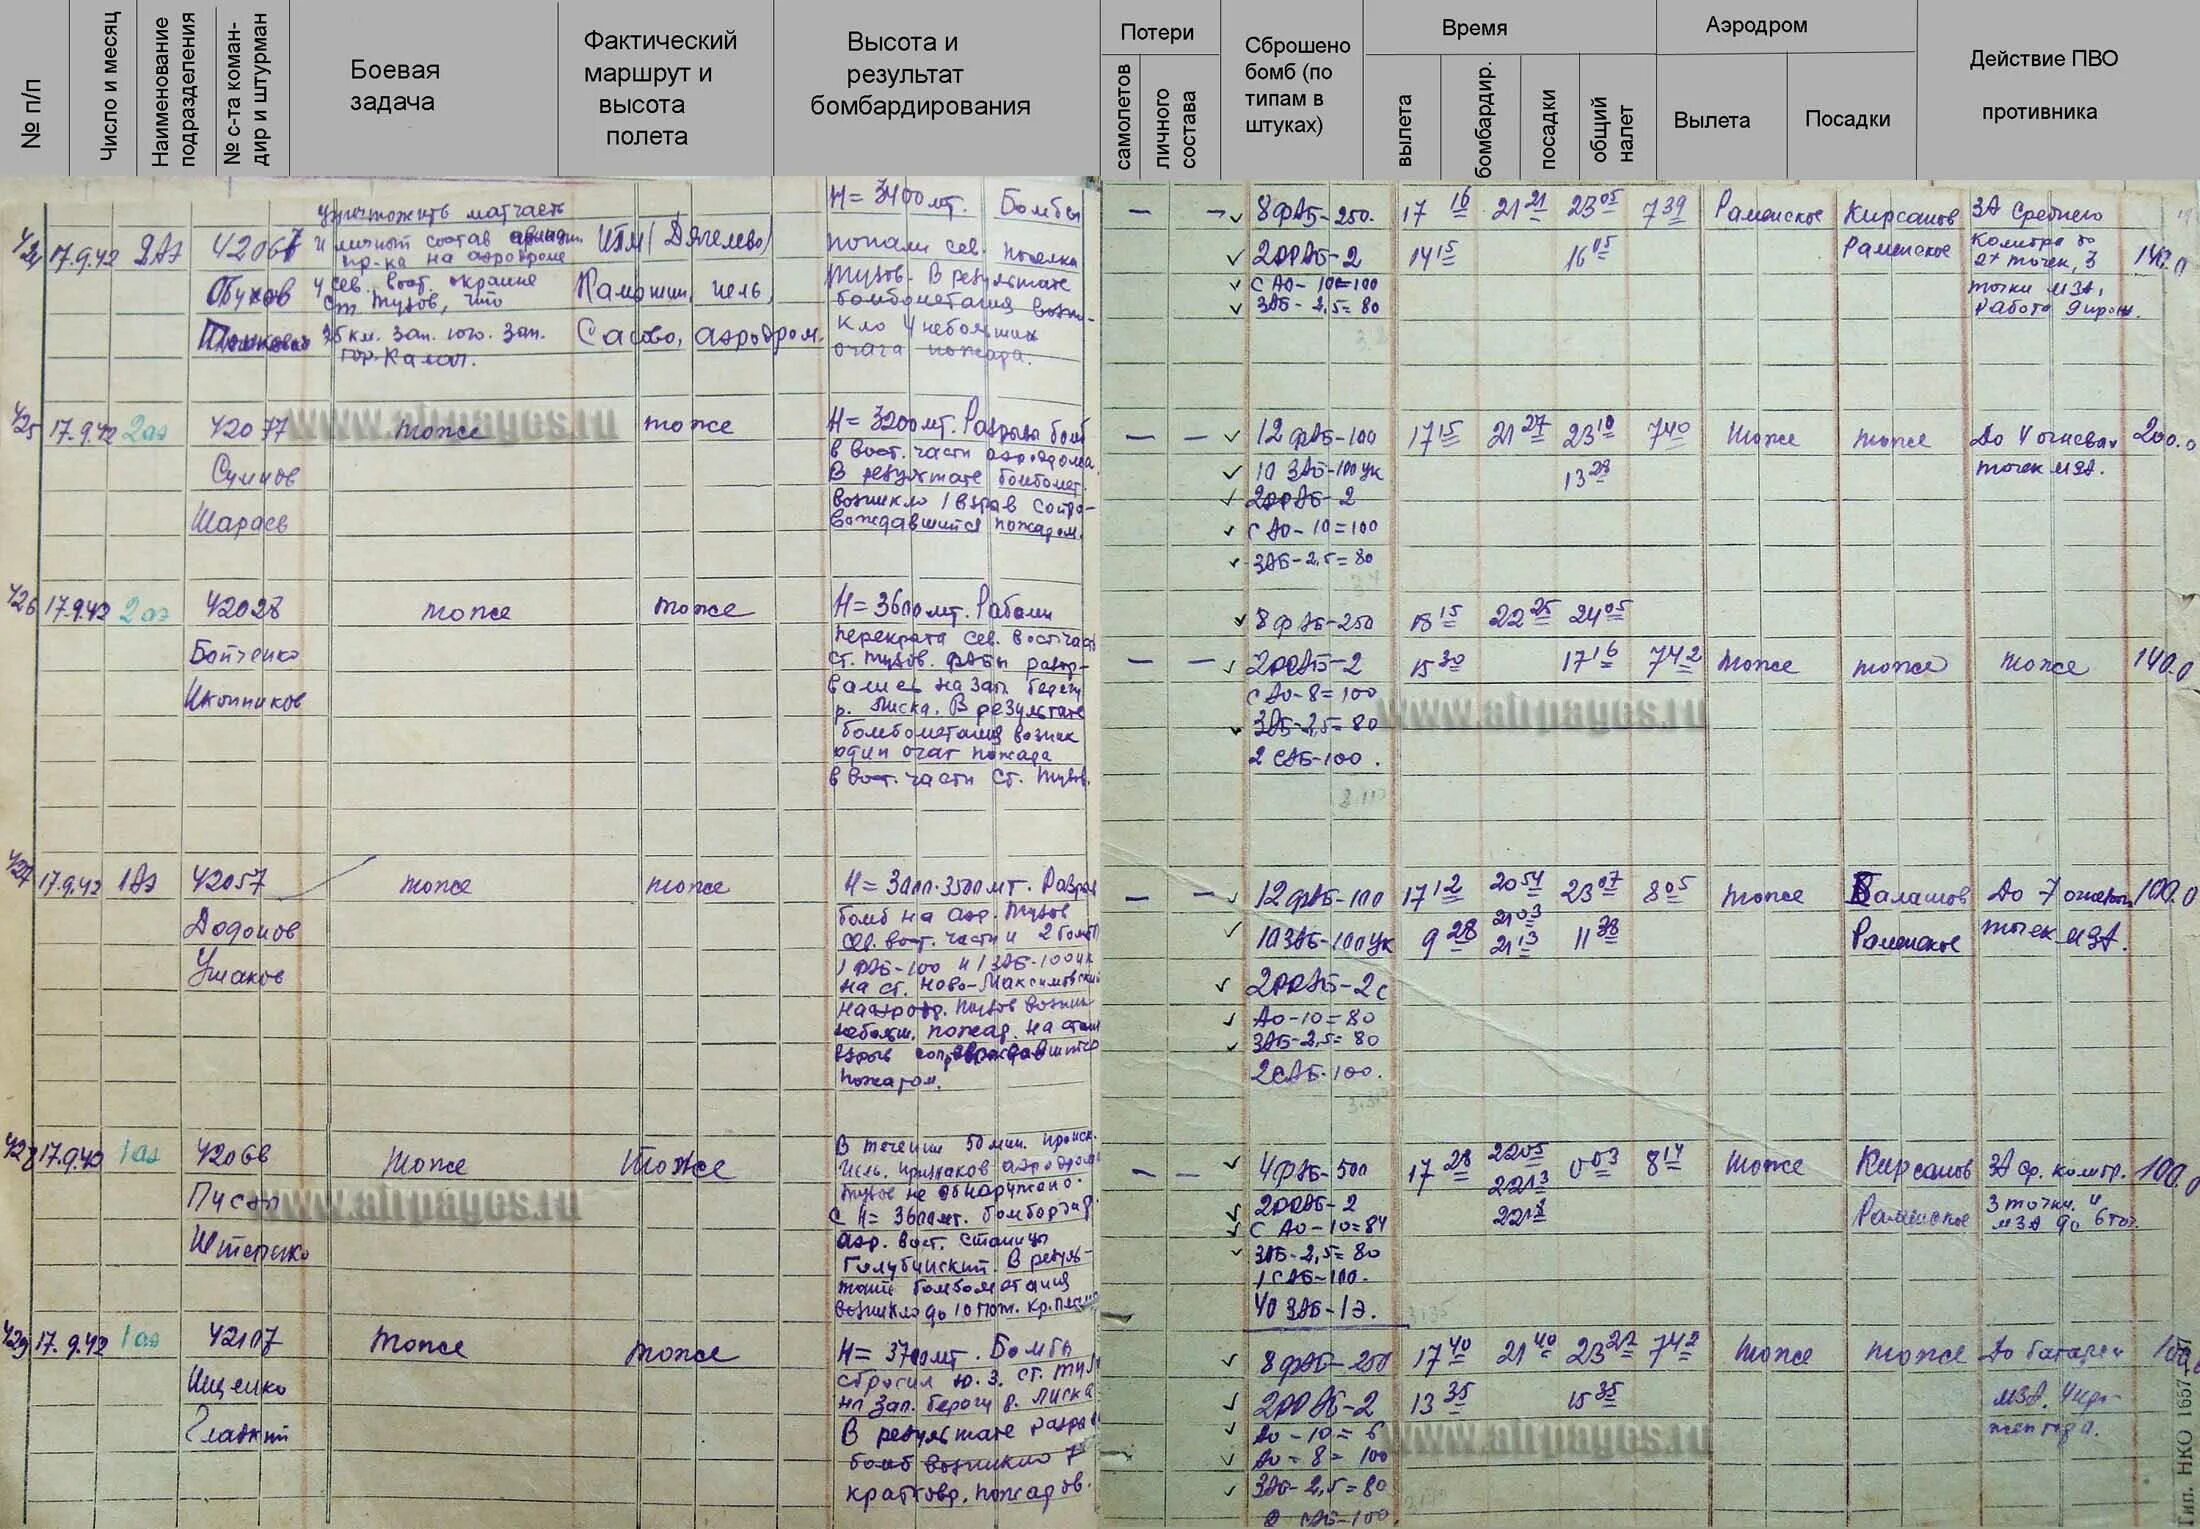 № п/п
Число и месяц
Наименование подразделения
№ с-та коман-
дир и штурман
Боевая
задача
Фактический
маршрут и
высота
полета
Высота и
результат
бомбардирования
Потери
самолетов
личного
состава
Сброшено
бомб (по
типам в
штуках)
Время
вылета
бомбардир.
посадки
общий
налет
Аэродром
Вылета
Посадки
Действие ПВО
противника
424 17.9.42 2АЭ 42067
Обухов
уничтожить матчасть
и личный состав
пр-ка на аэродроме
сев. вост. окраине
ст. Тузов, что
35 км. зап. юго. зап.
гор. Калач.
ИПМ (Дягелево)
Камышин, цель,
Сасово, аэродром.
Н = 3400 мт. Бомбы
попали сев. поселка
Тузов. В результате
бомбометания возни-
кло 4 небольших
очага пожара.
— —
8 ФАБ-250. 17 16 21 21 23 05 7 39 Раменское Кирсанов ЗА среднего
2РРАБ-2 14 15 16 05 Раменское калибра до
2х точек, 3
с АО-10=100 точки МЗА,
ЗАБ-2,5=80 Работа 9 прож.
425 17.9.42 2аэ 42077
Шараев
тоже
тоже
Н = 3200 мт. Разрывы бомб
в вост. части аэродрома
В результате бомбомет.
возникло 1 взрыв сопро-
вождавшийся пожаром.
— —
12 ФАБ-100 17 15 21 27 23 10 7 40 тоже тоже До 4 огневых 200.0
10 ЗАБ-100 ЦК 13 28 точек МЗА.
2РРАБ-2
с АО-10=100
ЗАБ-2,5=80
426 17.9.42 2аэ 42028
Бойченко
Иконников
тоже
тоже
Н = 3600 мт.
перекрыта сев. вост. часть
ст. Тузов. ФАБы разор-
вались на зап. берегу
р. Лиска. В результате
бомбометания возник
один очаг пожара
в вост. части ст. Тузов.
8 ФАБ-250 18 15 22 25 24 05
— — 2РРАБ-2 15 30 17 16 7 42 тоже тоже тоже 140.0
с АО-8=100
ЗАБ-2,5=80
2 САБ-100.
427 17.9.42 1АЭ 42057
Додонов
Ушаков
тоже
тоже
Н = 3000-3500 мт.
бомб на аэр. Тузов
сев. вост. части и 2 бомбы
1 ФАБ-100 и 1 ЗАБ-100 ЦК
на ст. Ново-Максимовский
на аэродр. Тузов возник
небольш. пожар. на стан
взрыв сопровождавшийся
пожаром.
— —
12 ФАБ-100 17 12 20 54 23 07 8 05 тоже Балашов До 7 огневых 100.0
10 ЗАБ-100 ЦК 9 28 21 03 11 38 Раменское точек МЗА.
21 13
2РРАБ-2 с
АО-10=80
ЗАБ-2,5=80
2 САБ-100.
428 17.9.42 1аэ 42068
Пусэп
Штепенко
тоже
тоже
В течении 50 мин. происк.
цель, признаков аэродрома
Тузов не обнаружено.
С Н = 3600 мт.
аэр. вост. станицы
Голубинский. В резуль-
тате бомбометания
возникло до 10 пож.
— —
4 ФАБ-500 17 28 22 05 0 03 8 14 тоже Кирсанов ЗА ср. калибр. 100.0
22 13
2РРАБ-2 22 18 Раменское 3 точки и
с АО-10=84 МЗА до 6 точ.
ЗАБ-2,5=80
1 САБ-100.
40 ЗАБ-1Э.
429 17.9.42 1аэ 42107
Ищенко
Гладкий
тоже
тоже
Н = 3700 мт. Бомбы
сбросил ю. з. ст. Тузов
на зап. берегу р. Лиска
В результате разрыва
бомб возникло 7
кратковр. пожаров.
8 ФАБ-250 17 40 21 40 23 22 7 42 тоже тоже До батареи
2РРАБ-2 13 35 15 35 МЗА.
АО-10=6
АО-8=100
ЗАБ-2,5=80
САБ-100.
Тип. НКО 1657
www.airpages.ru
www.airpages.ru
www.airpages.ru
www.airpages.ru